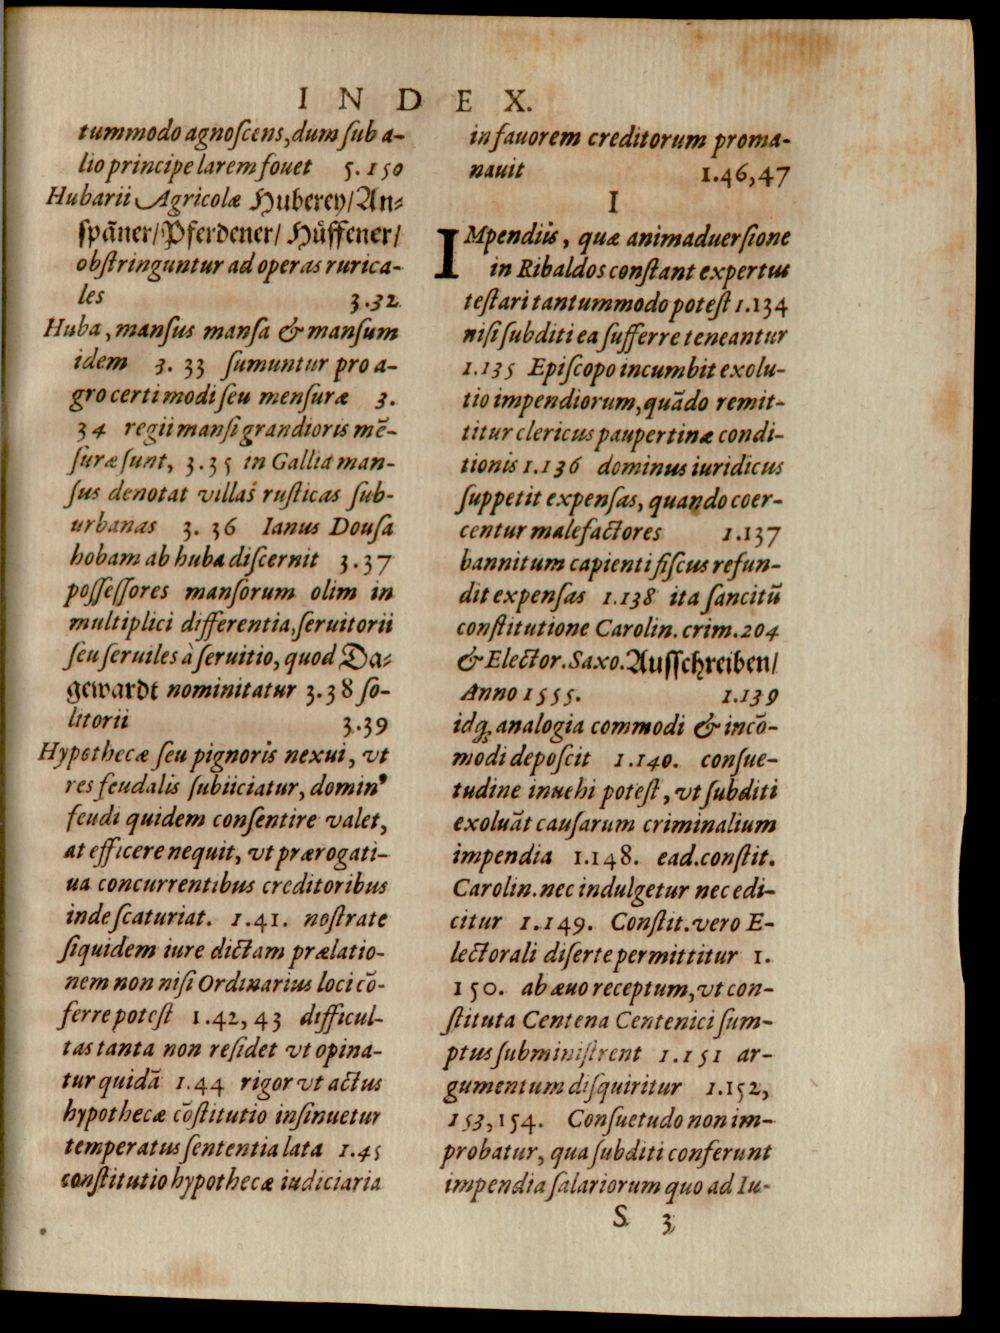 INDEX.
tummodo agnoſcens, dum ſub a-
lio principe larem fouet 5. 150
Hubarii Agricolæ Huberey/ An⸗
ſpãner/ Pferdener/ Hüffener/
obſtringuntur ad operas rurica-
les 3. 32.
Huba, manſus manſa & manſum
idem 3. 33 ſumuntur pro a-
gro certi modi ſeu menſuræ 3.
34 regii manſi grandioris mẽ-
ſuræ ſunt, 3. 35 in Gallia man-
ſus denotat villas ruſticas ſub-
urbanas 3. 36 Ianus Douſa
hobam ab huba diſcernit 3. 37
poſſeſſores manſorum olim in
multiplici differentia, ſeruitorii
ſeu ſeruiles à ſeruitio, quod Da⸗
gewardt nominitatur 3. 38 ſo-
litorii 3. 39
Hypothecæ ſeu pignoris nexui, vt
res feudalis ſubiiciatur, dominꝰ
feudi quidem conſentire valet,
at efficere nequit, vt prærogati-
ua concurrentibus creditoribus
inde ſcaturiat. 1. 41. noſtrate
ſiquidem iure dictam prælatio-
nem non niſi Ordinarius loci cõ-
ferre poteſt 1. 42, 43 difficul-
tas tanta non reſidet vt opina-
tur quidã 1. 44 rigor vt actus
hypothecæ cõſtitutio inſinuetur
temperatus ſententia lata 1. 45
conſtitutio hypothecæ iudiciaria
in fauorem creditorum proma-
nauit 1. 46, 47
I
IMpendiis, quæ animaduerſione
in Ribaldos conſtant expertus
teſtari tantummodo poteſt 1. 134
niſi ſubditi ea ſufferre teneantur
1. 135 Epiſcopo incumbit exolu-
tio impendiorum, quãdo remit-
titur clericus paupertinæ condi-
tionis 1. 136 dominus iuridicus
ſuppetit expenſas, quando coer-
centur malefactores 1. 137
bannitum capienti fiſcus refun-
dit expenſas 1. 138 ita ſancitũ
conſtitutione Carolin. crim. 204
& Elector. Saxo. Auſſchreiben/
Anno 1555. 1. 139
idq́; analogia commodi & incõ-
modi depoſcit 1. 140. conſue-
tudine inuehi poteſt, vt ſubditi
exoluãt cauſarum criminalium
impendia 1. 148. ead. conſtit.
Carolin. nec indulgetur nec edi-
citur 1. 149. Conſtit. vero E-
lectorali diſerte permittitur 1.
150. ab æuo receptum, vt con-
ſtituta Centena Centenici ſum-
ptus ſubminiſtrent 1. 151 ar-
gumentum diſquiritur 1. 152,
153, 154. Conſuetudo non im-
probatur, qua ſubditi conferunt
impendia ſalariorum quo ad Iu-
S 3